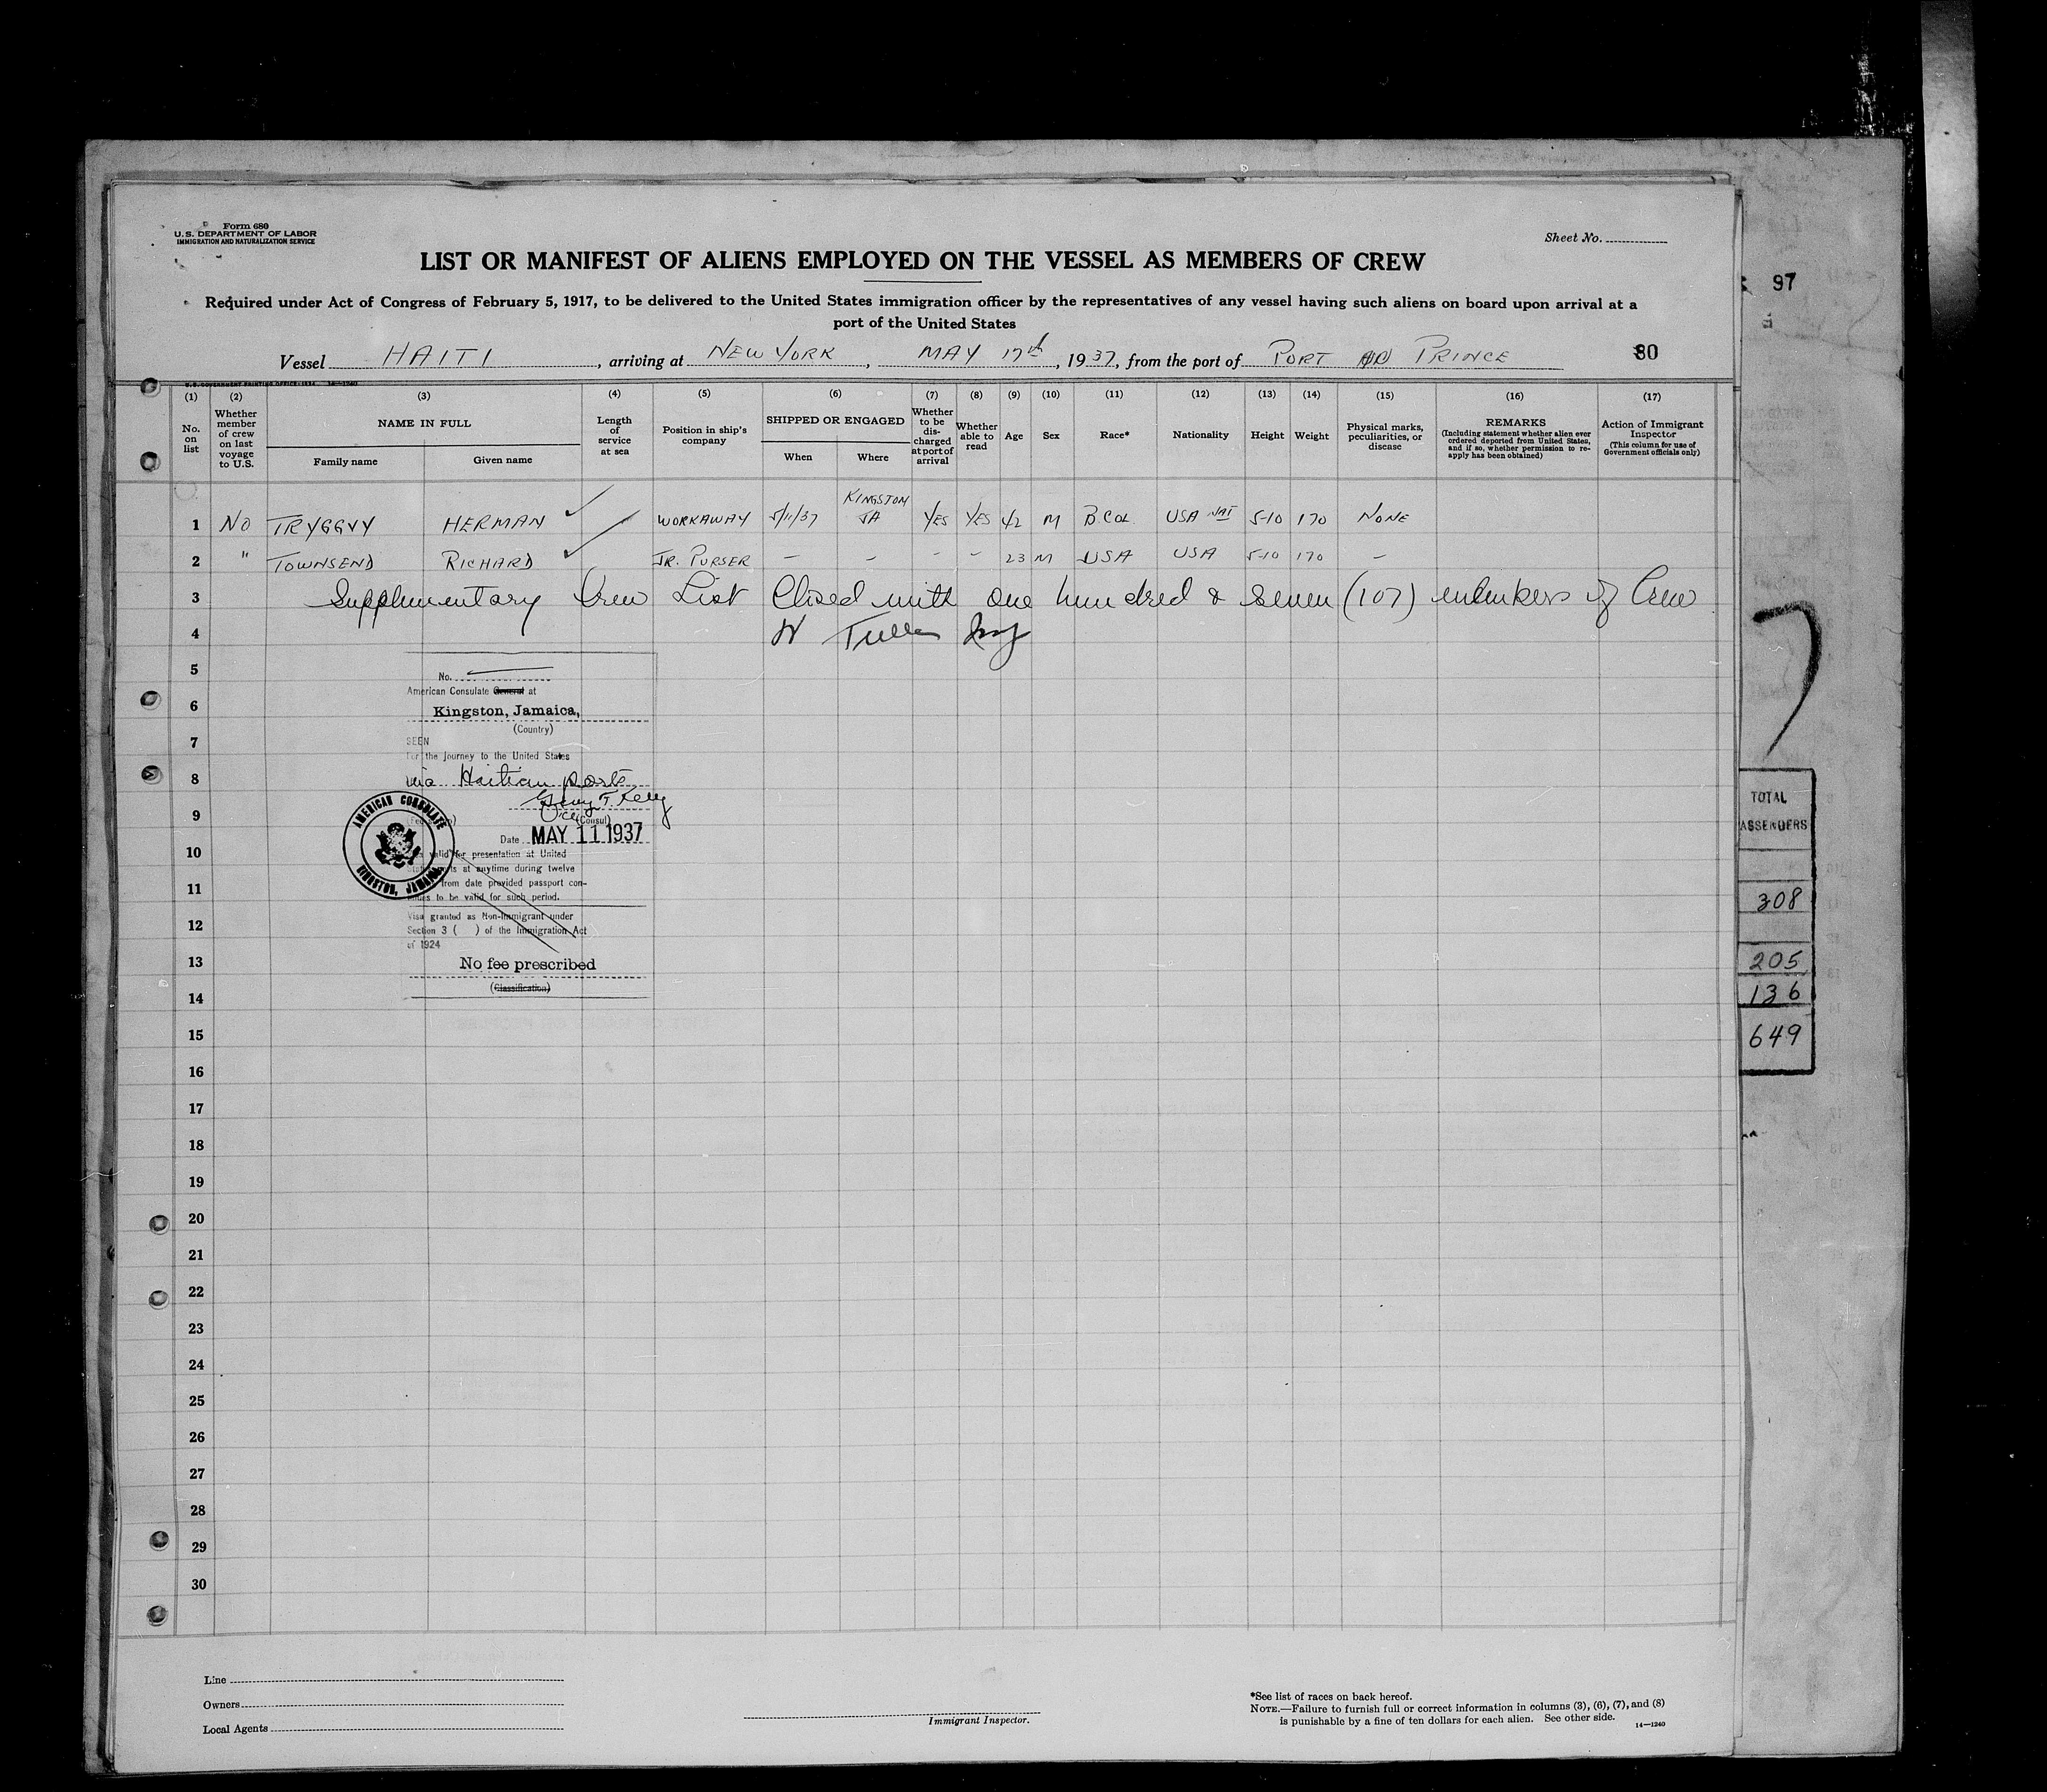 Form 680
U. S. DEPARTMENT OF LABOR
IMMIGRATION AND NATURALIZATION SERVICE
Sheet No.
LIST OR MANIFEST OF ALIENS EMPLOYED ON THE VESSEL AS MEMBERS OF CREW
Required under Act of Congress of February 5, 1917, to be delivered to the United States immigration officer by the representatives of any vessel having such aliens on board upon arrival at a
port of the United States
Vessel HAITI, arriving at NEW YORK, MAY 17th, 1937, from the port of PORT AU PRINCE
80
U. S. GOVERNMENT PRINTING OFFICE: 1934 14—1240
(1) (2) (3) (4) (5) (6) (7) (8) (9) (10) (11) (12) (13) (14) (15) (16) (17)
No. on list
Whether member of crew on last voyage to U.S.
NAME IN FULL
Family name
Given name
Length of service at sea
Position in ship's company
SHIPPED OR ENGAGED
When
Where
Whether to be discharged at port of arrival
Whether able to read
Age
Sex
Race*
Nationality
Height
Weight
Physical marks, peculiarities, or disease
REMARKS
(Including statement whether alien ever ordered deported from United States, and if so, whether permission to re-apply has been obtained)
Action of Immigrant Inspector
(This column for use of Government officials only)
1 NO TRYGGVY HERMAN WORKAWAY 5/11/37 KINGSTON JA YES YES 42 M B.COL. USA NAT 5-10 170 NONE
2 " TOWNSEND RICHARD JR. PURSER – – – – 23 M USA USA 5-10 170 –
3 Supplementary Crew List Closed with one hundred & seven (107) members of Crew
4 W
5
6
7
8
9
10
11
12
13
14
15
16
17
18
19
20
21
22
23
24
25
26
27
28
29
30
No.
American Consulate General at
Kingston, Jamaica,
(Country)
SEEN
For the journey to the United States
via Haitian ports
Vice (Consul)
Date MAY 11 1937
valid for presentation at United
at anytime during twelve
from date provided passport con-
to be valid for such period.
Visa granted as Non-Immigrant under
Section 3 ( ) of the Immigration Act
of 1924
No fee prescribed
(Classification)
AMERICAN CONSULATE
KINGSTON, JAMAICA
97
TOTAL
ASSENGERS
308
205
136
649
Line
Owners
Local Agents
Immigrant Inspector.
*See list of races on back hereof.
NOTE.—Failure to furnish full or correct information in columns (3), (6), (7), and (8)
is punishable by a fine of ten dollars for each alien. See other side.
14—1240